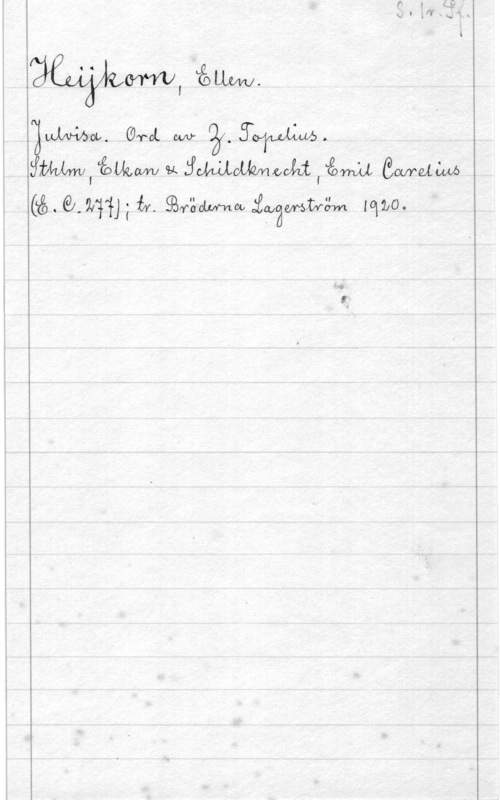 S. 1 v. Pf.
Heijkorn, Ellen.
Julvisa. Ord av Z. Topelius.
Sthlm, Elkan & Schildknecht, Emil Carelius
(E. C. 277); tr. Bröderna Lagerström 1920.